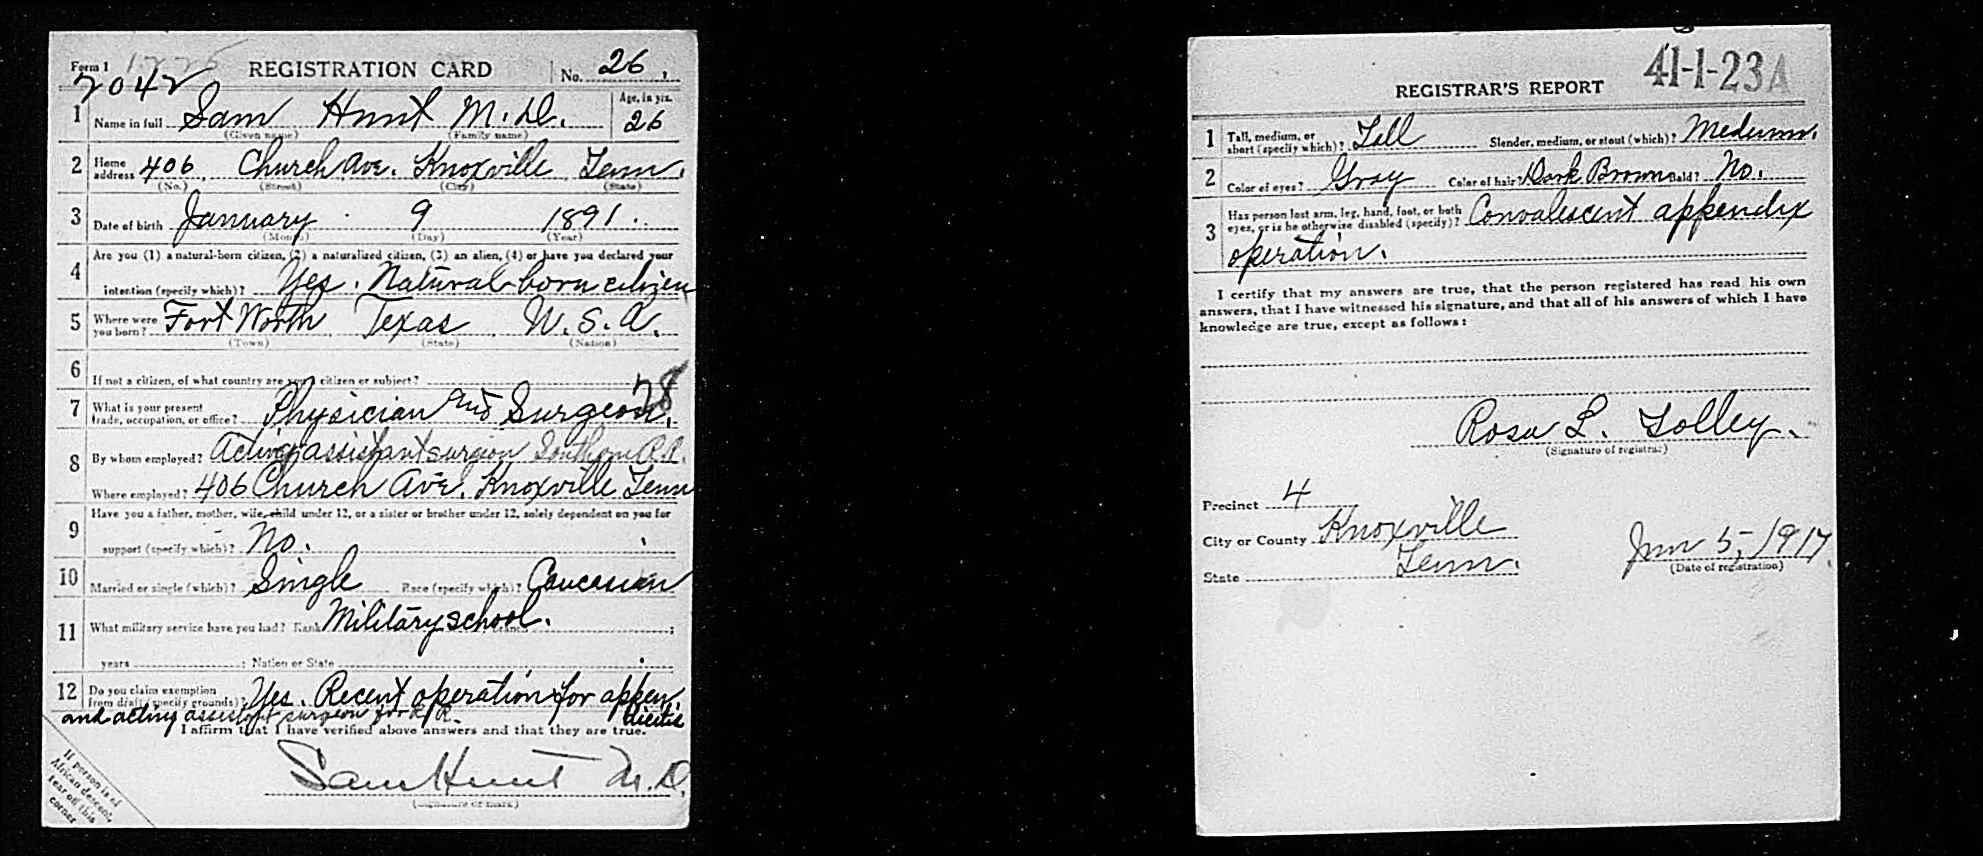 Form 1 1225 REGISTRATION CARD No. 26
2042
1 Name in full Sam Hunt M.D. Age, in yrs. 26
(Given name) (Family name)
2 Home address 406 Church Ave. Knoxville Tenn.
(No.) (Street) (City) (State)
3 Date of birth January 9 1891
(Month) (Day) (Year)
4 Are you (1) a natural-born citizen, (2) a naturalized citizen, (3) an alien, (4) or have you declared your
intention (specify which)? Yes. Natural-born citizen
5 Where were you born? Fort Worth Texas U.S.A.
(Town) (State) (Nation)
6 If not a citizen, of what country are you a citizen or subject?
7 What is your present trade, occupation, or office? Physician and Surgeon. 28
8 By whom employed? Acting assistant surgeon Southern R.R.
Where employed? 406 Church Ave. Knoxville Tenn
9 Have you a father, mother, wife, child under 12, or a sister or brother under 12, solely dependent on you for
support (specify which)? No.
10 Married or single (which)? Single Race (specify which)? Caucasian
11 What military service have you had? Rank Military school.
years ; Nation or State
12 Do you claim exemption from draft (specify grounds)? Yes. Recent operation for appen
dicitis
and acting assistant surgeon for R.R.
I affirm that I have verified above answers and that they are true.
Sam Hunt M.D.
(Signature or mark)
If person is of
African descent,
tear off this
corner
41-1-23 A
REGISTRAR'S REPORT
1 Tall, medium, or short (specify which)? Tall Slender, medium, or stout (which)? Medium.
2 Color of eyes? Gray Color of hair? Dark Brown Bald? No.
3 Has person lost arm, leg, hand, foot, or both
eyes, or is he otherwise disabled (specify)? Convalescent appendix
operation.
I certify that my answers are true, that the person registered has read his own
answers, that I have witnessed his signature, and that all of his answers of which I have
knowledge are true, except as follows:
Rosa L. Tolley.
(Signature of registrar)
Precinct 4
City or County Knoxville
State Tenn.
Jun 5, 1917
(Date of registration)